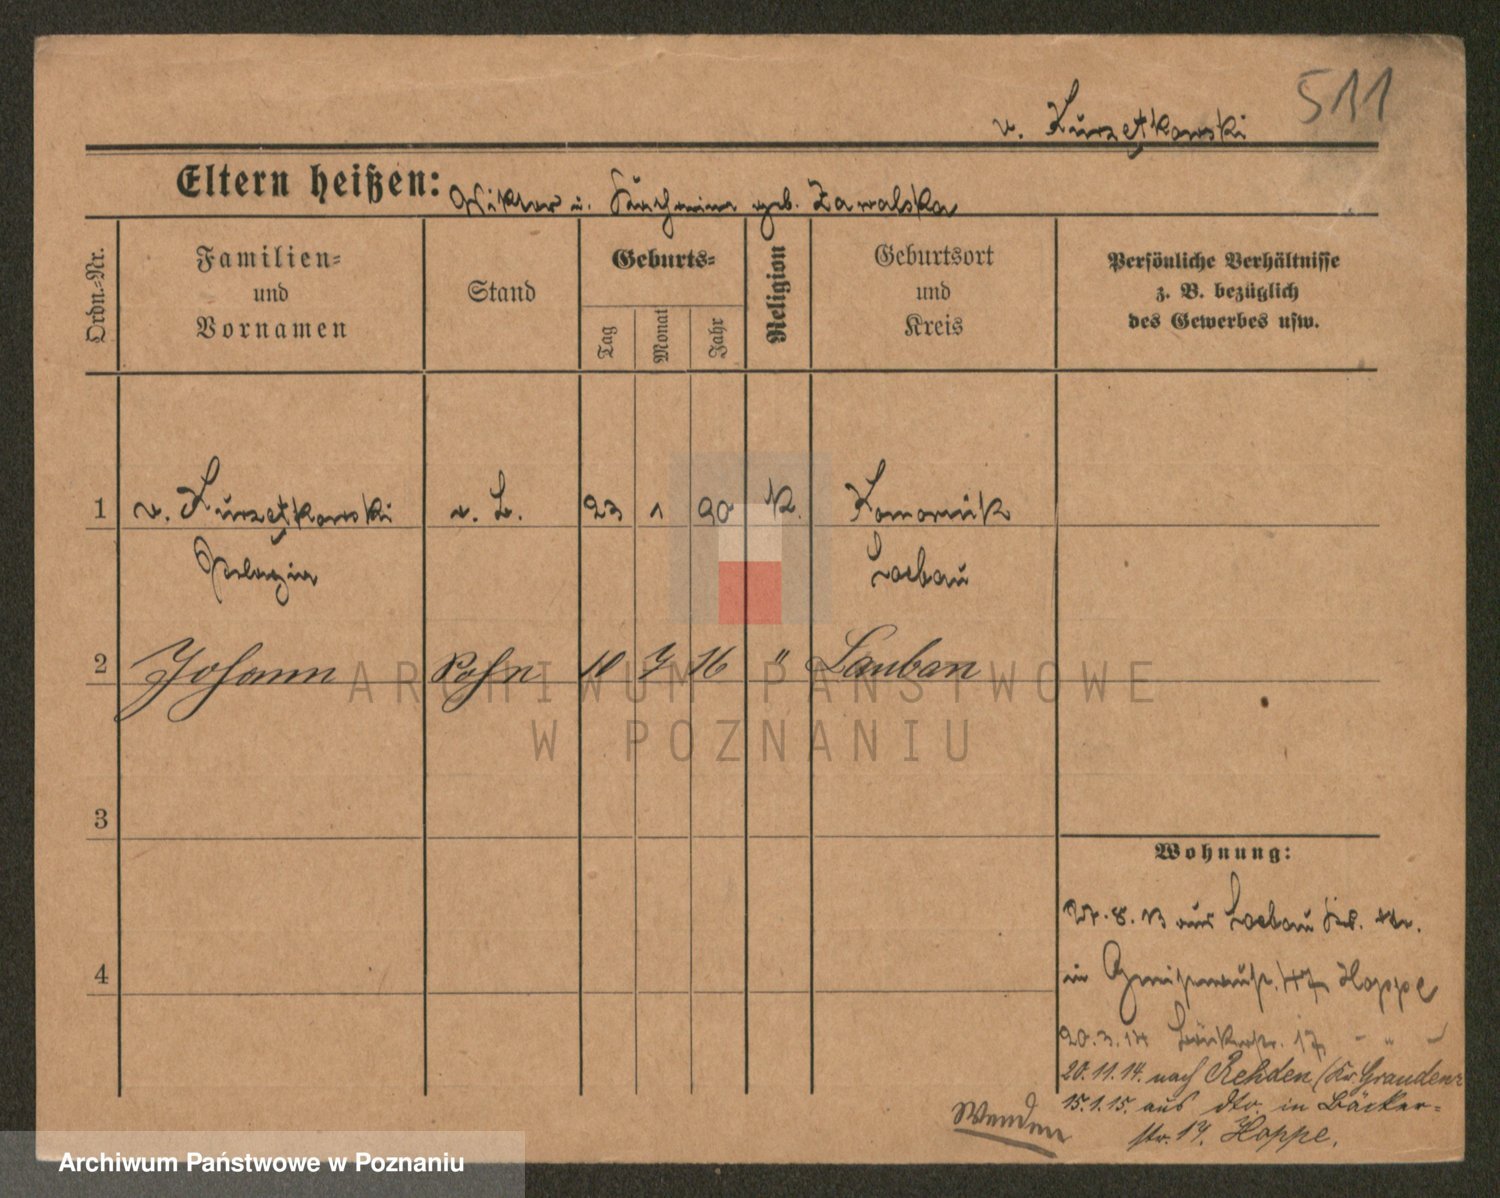 511
v. Kurzętkowski
Eltern heißen: Wiktor u. geb. Zawalska
Ordn.=Nr.
Familien=
und
Vornamen
Stand
Geburts=
Tag
Monat
Jahr
Religion
Geburtsort
und
Kreis
Persönliche Verhältnisse
z. B. bezüglich
des Gewerbes usw.
1 v. Kurzętkowski v. L. 23 1 90 K. Komornik
Pelagia Loebau
2 Johann Sohn 10 7 16 " Lauban
3
4
Wohnung:
27. 8. 13 aus Loebau
in Gneisenaustr. 47 Hoppe
20. 3. 14 Bäckerstr. 17 - " -
20. 11. 14. nach Rehden (Kr. Graudenz
15. 1. 15. aus dto. in Bäcker=
str. 17. Hoppe.
Wenden
ARCHIWUM PAŃSTWOWE
W POZNANIU
Archiwum Państwowe w Poznaniu